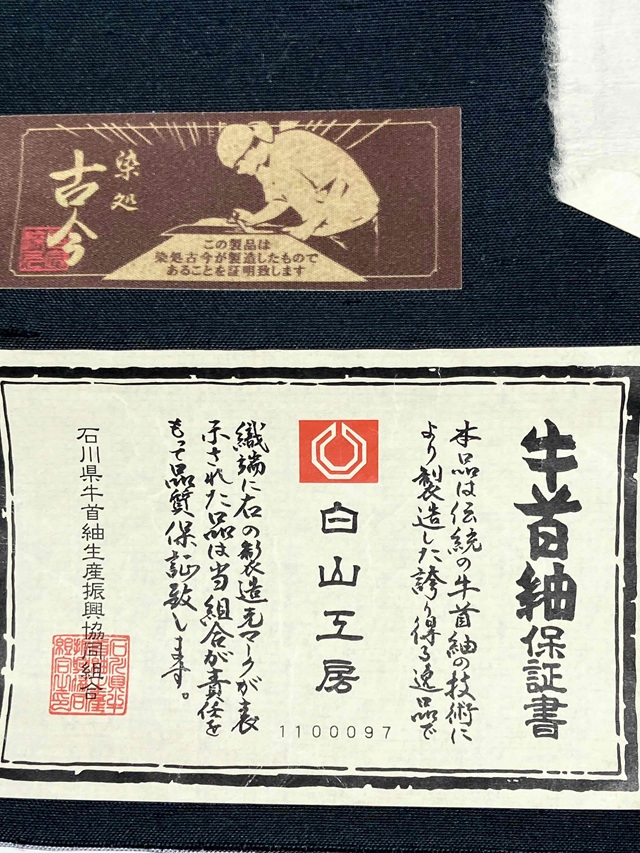 染処
古今
この製品は
染処古今が製造したもので
あることを証明致します
牛首紬保証書
本品は伝統の牛首紬の技術に
より製造した誇り得る逸品で
白山工房
1100097
織端に右の製造元マークが表
示された品は当組合が責任を
もって品質保証致します。
石川県牛首紬生産振興協同組合